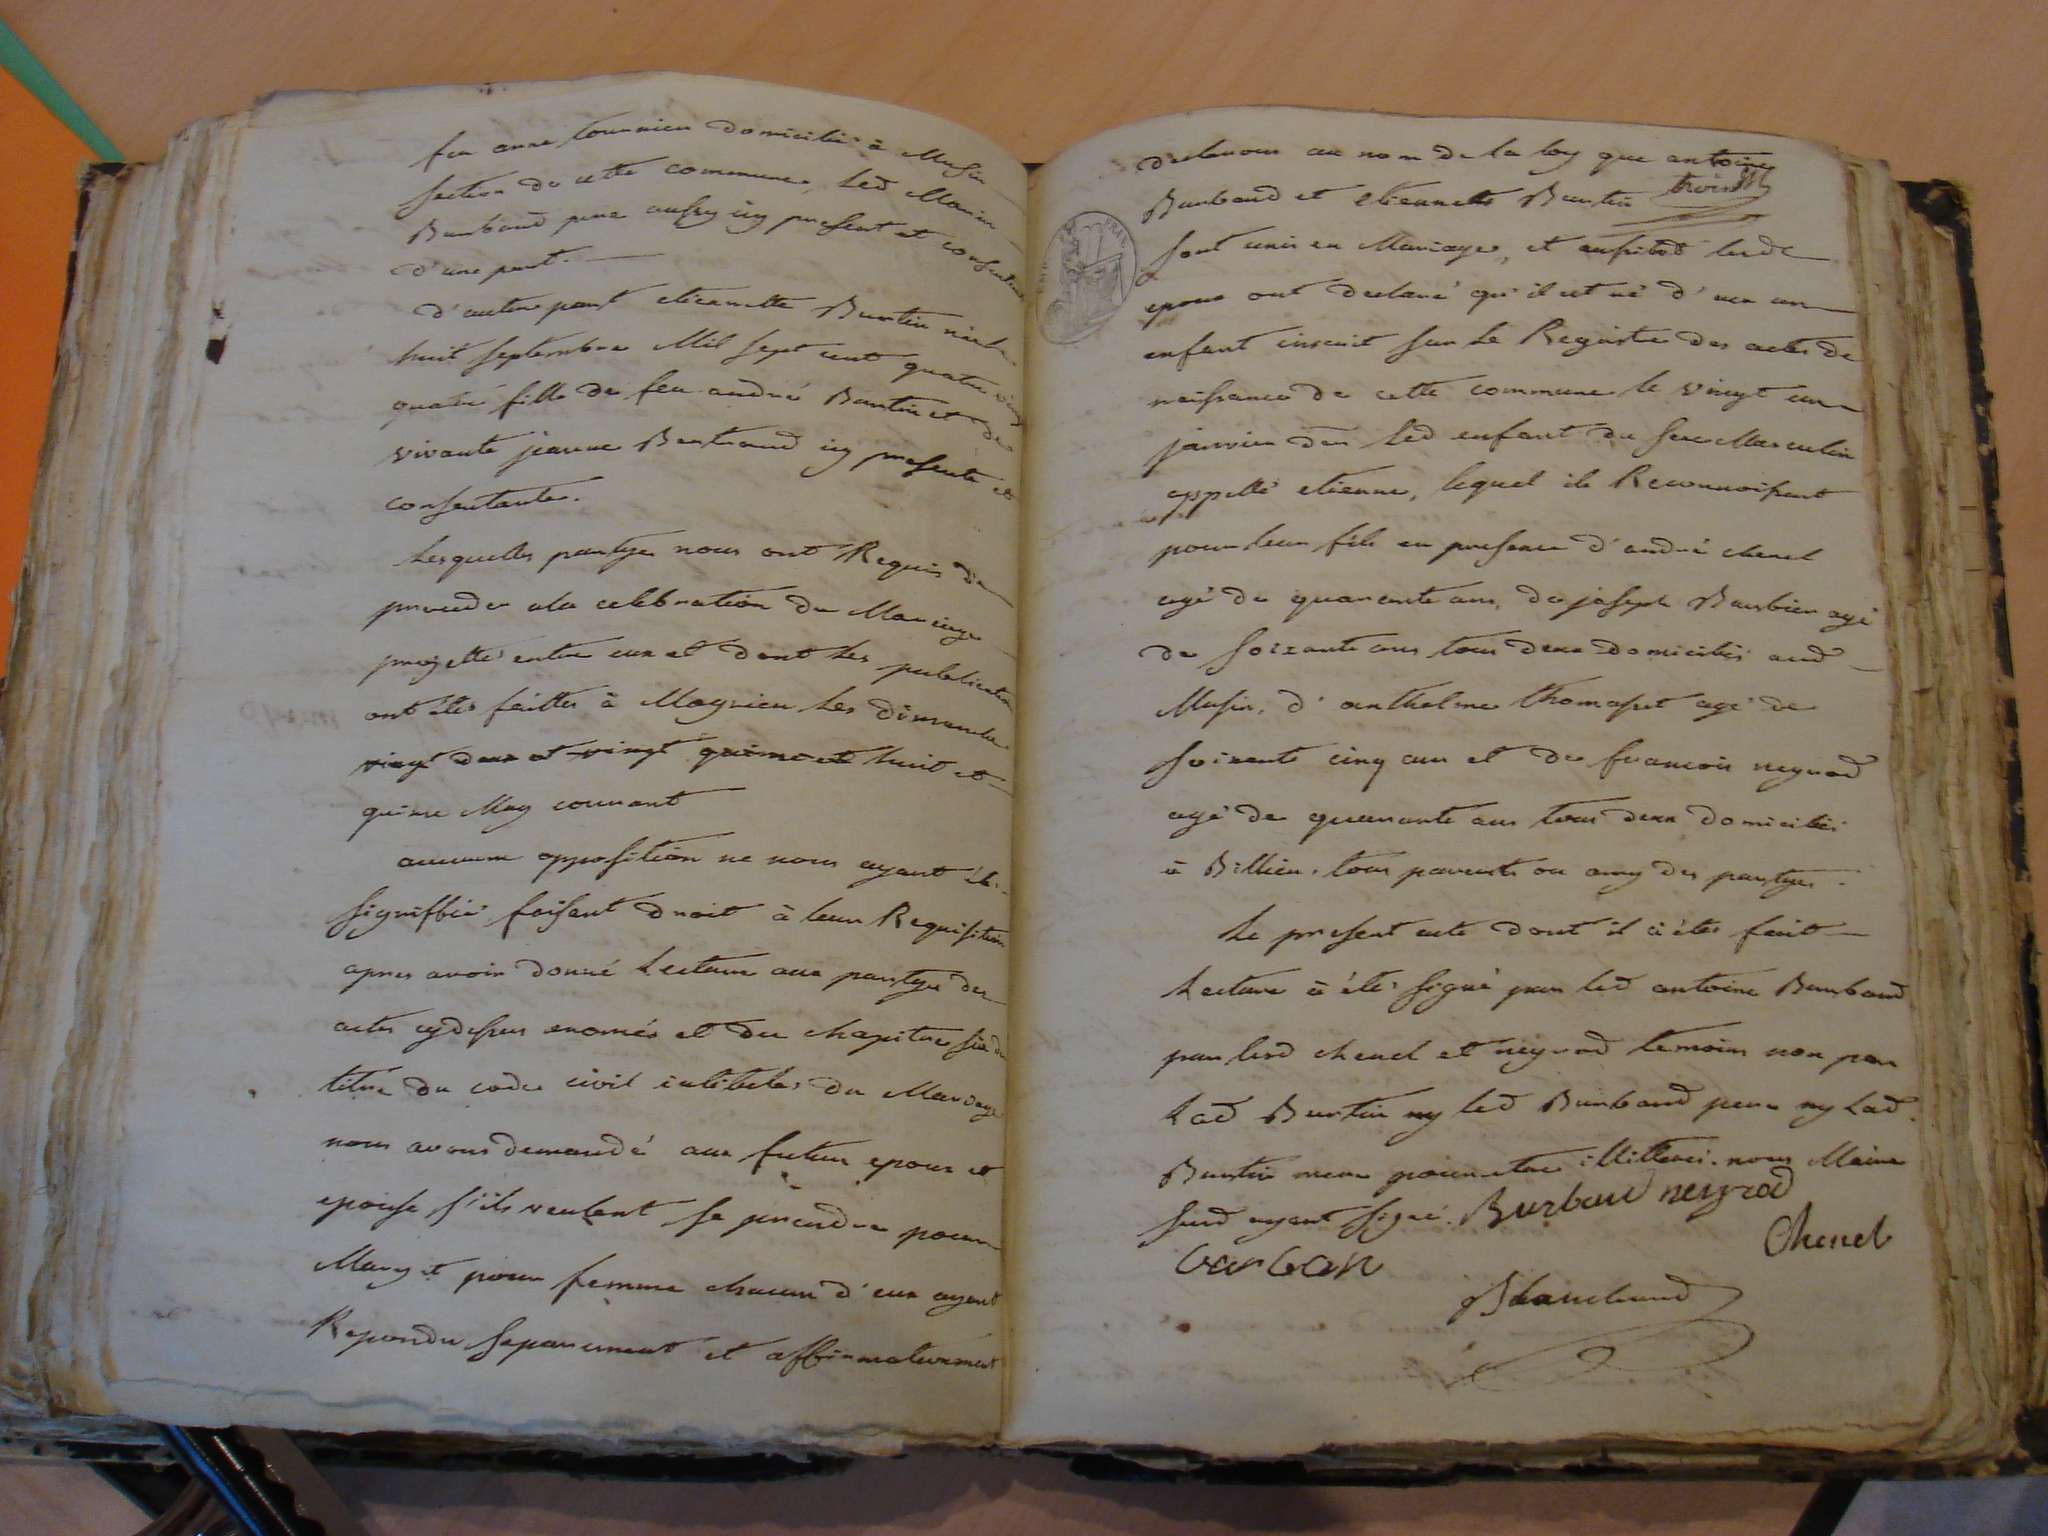 feu anne tournier domicilié à Musin
section de cette commune, led Marin
Burbaud pere aussy icy present et consentant
d'une part.
d'autre part etiennette Burtin née le
huit septembre Mil sept cent quatre vingt
quatre fille de feu andré Burtin et de
vivante jeanne Bertrand icy presente et
consentante.
Lesquelles partyes nous ont Requis de
proceder a la celebration du Mariage
projetté entre eux et dont les publication
ont étés faittes à Magnieu les dimanche
vingt deux et vingt quinse et huit et
quinse May courant
aucune opposition ne nous ayant été
signiffiée faisant droit à leur Requisition
apres avoir donné Lecture aux partyes des
actes cydessus enomés et du chapitre six du
titre du code civil intitulés du Mariage
nous avons demandé aux futur epoux et
epouse s'ils veulent se prendre pour
Mary et pour femme chacun d'eux ayant
Repondu separement et affirmativement
declarons au nom de la loy que antoine
Burbaud et etiennette Burtin
sont unis en Mariage, et aussitod lesd
epoux ont declaré qu'il est né d'eux un
enfant inscrit sur le Registre des actes de
naissance de cette commune le vingt un
janvier der led enfant du sexe Masculin
appellé etienne, lequel ils Reconnoissent
pour leur fils en presence d'andré chenel
agé de quarante ans, de joseph Barbier agé
de soixante ans tous deux domiciliés aud
Musin, d'anthelme thomasset agé de
soixante cinq ans et de francois neyrod
agé de quarante ans tous deux domiciliés
à Billieu. tous parents ou amy des partyes.
Le present acte dont il à étés fait
Lecture à été signé par led antoine Burbaud
par lesd chenel et neyrod temoins non par
Lad Burtin ny led Burbaud pere ny Lad.
Burtin mere pour etre illitterés. nous Maire
susd ayant signé. Burbaud neyrod
Chenel
barban
Blanchard